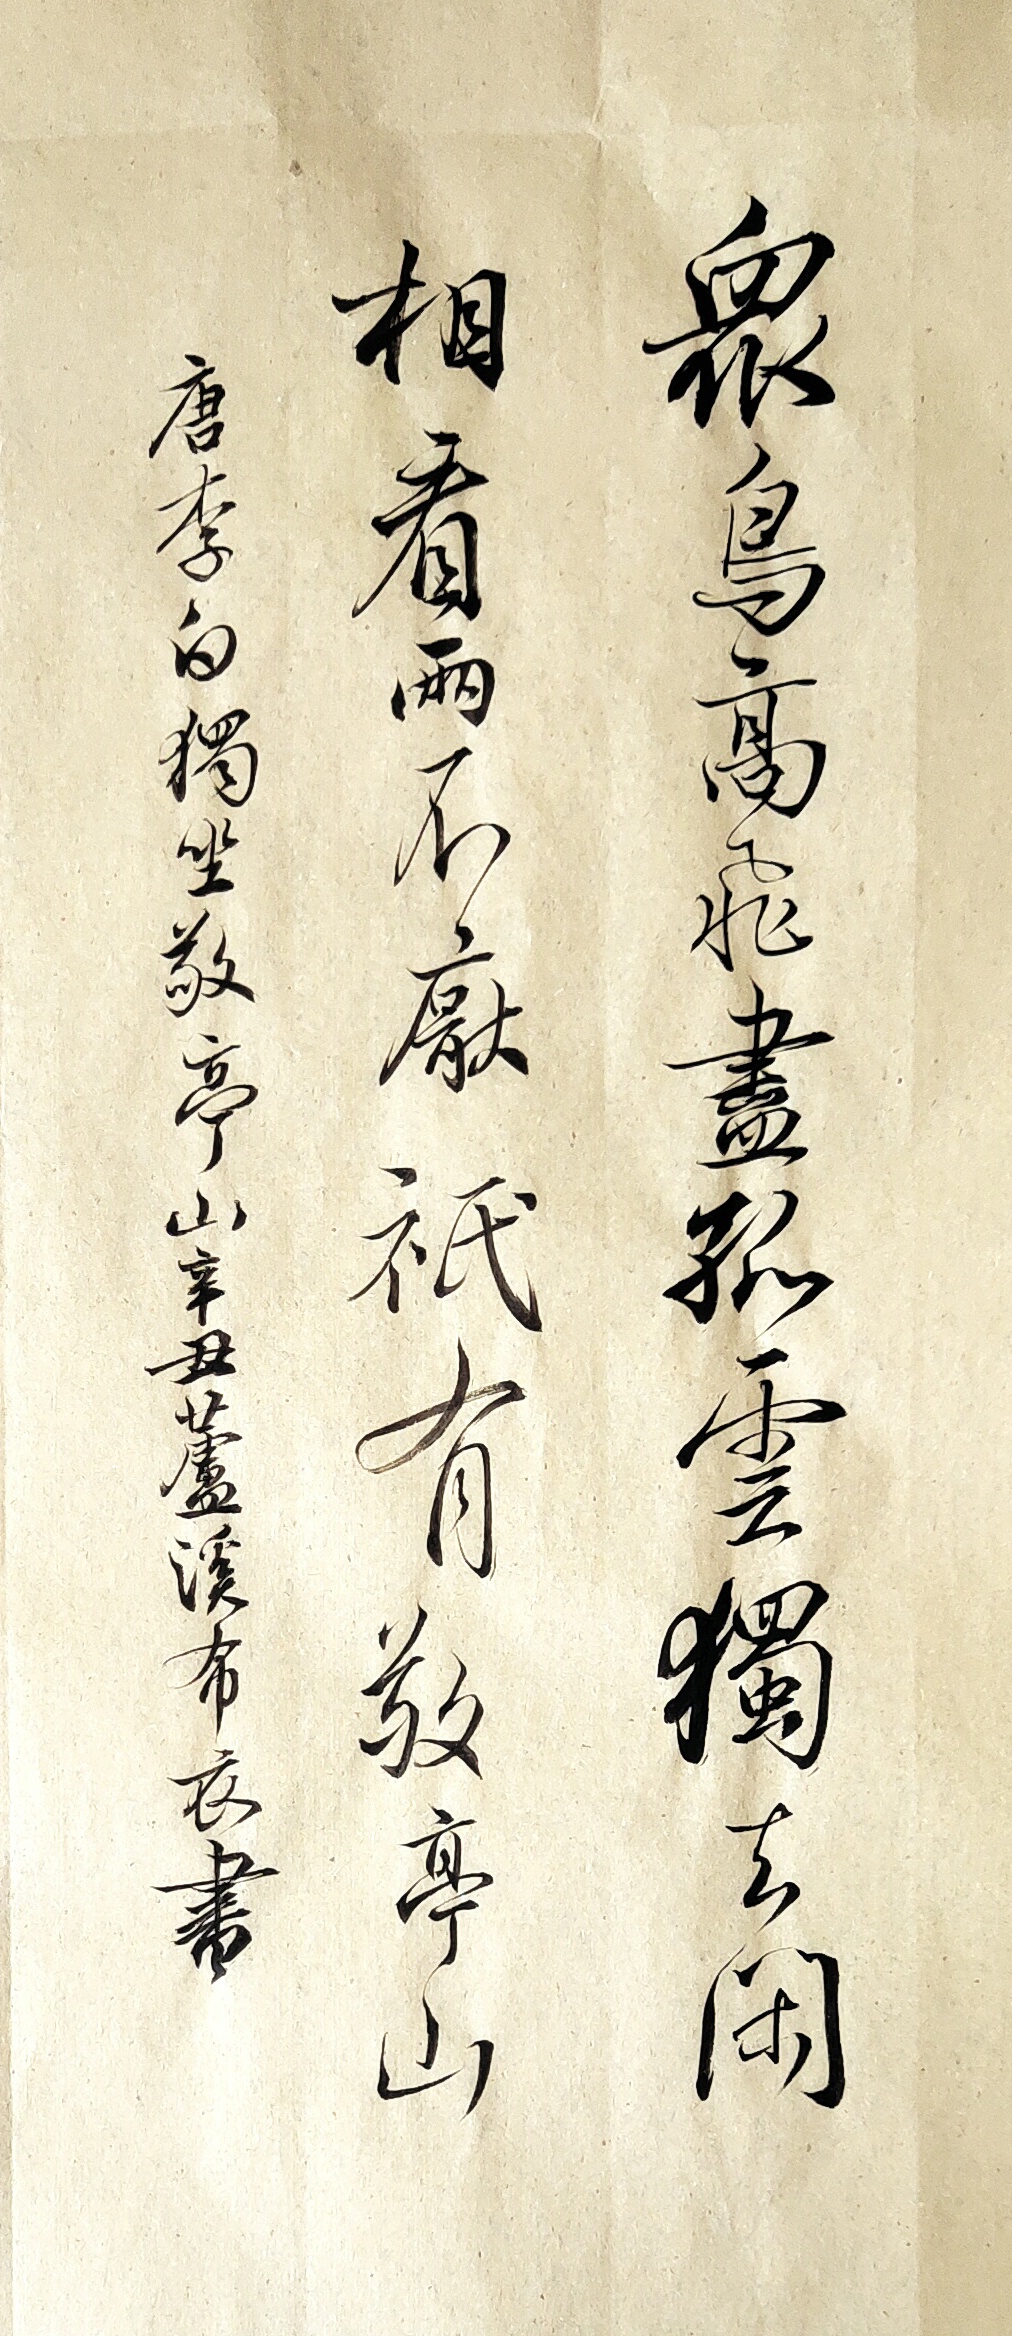 眾鳥高飛盡孤雲獨去閑
相看兩不厭祇有敬亭山
唐李白獨坐敬亭山辛丑蘆溪布衣書